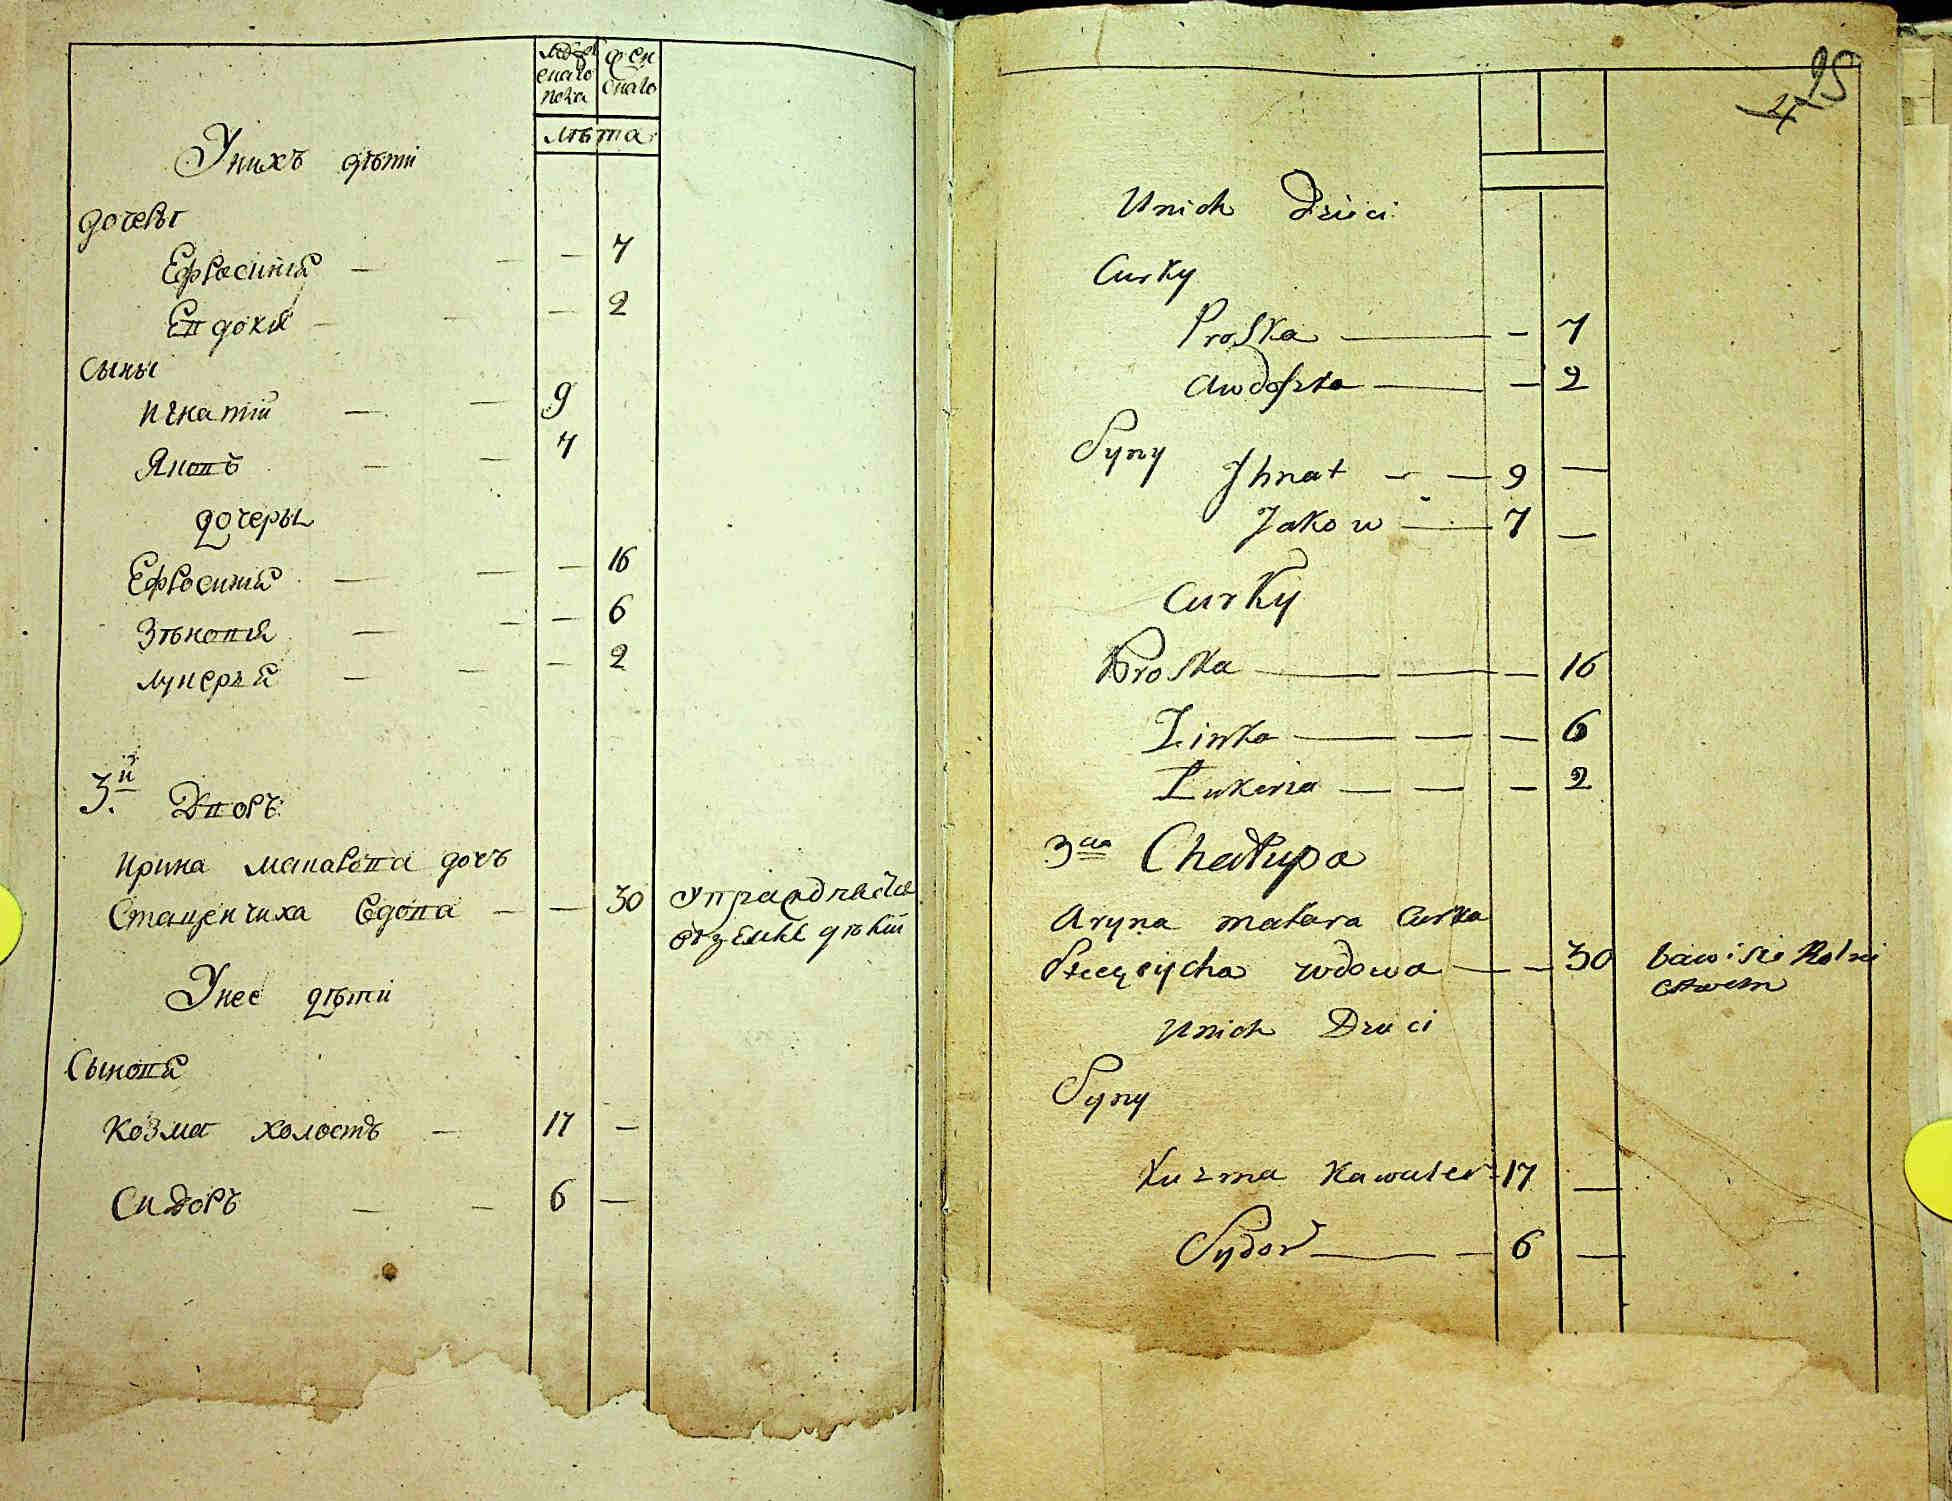 мужескаго пола
женскаго
лѣта
У нихъ дѣти
дочеры
Ефросиния — — — 7
Евдокия — — — 2
Сыны
Игнатий — — 9
Яковъ — — 7
дочеры
Ефросиния — — — 16
Зѣновия — — — 6
Лукерья — — — 2
3.й Дворъ
Ирина Макарова дочъ
Стаценчиха вдова — — 30 упражняется
въ земледѣлии
У нее дѣти
Сыновя
Козма холостъ — 17 —
Сидоръ — — 6 —
25
Unich Dzieci
Curky
Proska — — 7
Awdoszka — — 2
Syny
Ihnat — — 9 —
Jakow — 7 —
Curky
Proska — — — 16
Zinka — — — 6
Lukeria — — — 2
3cia Chałupa
Aryna makara Curka
wdowa — — 30 bawi sie Rolni
ctwem
Unich Dzieci
Syny
Kuzma Kawaler 17 —
Sydor — — 6 —